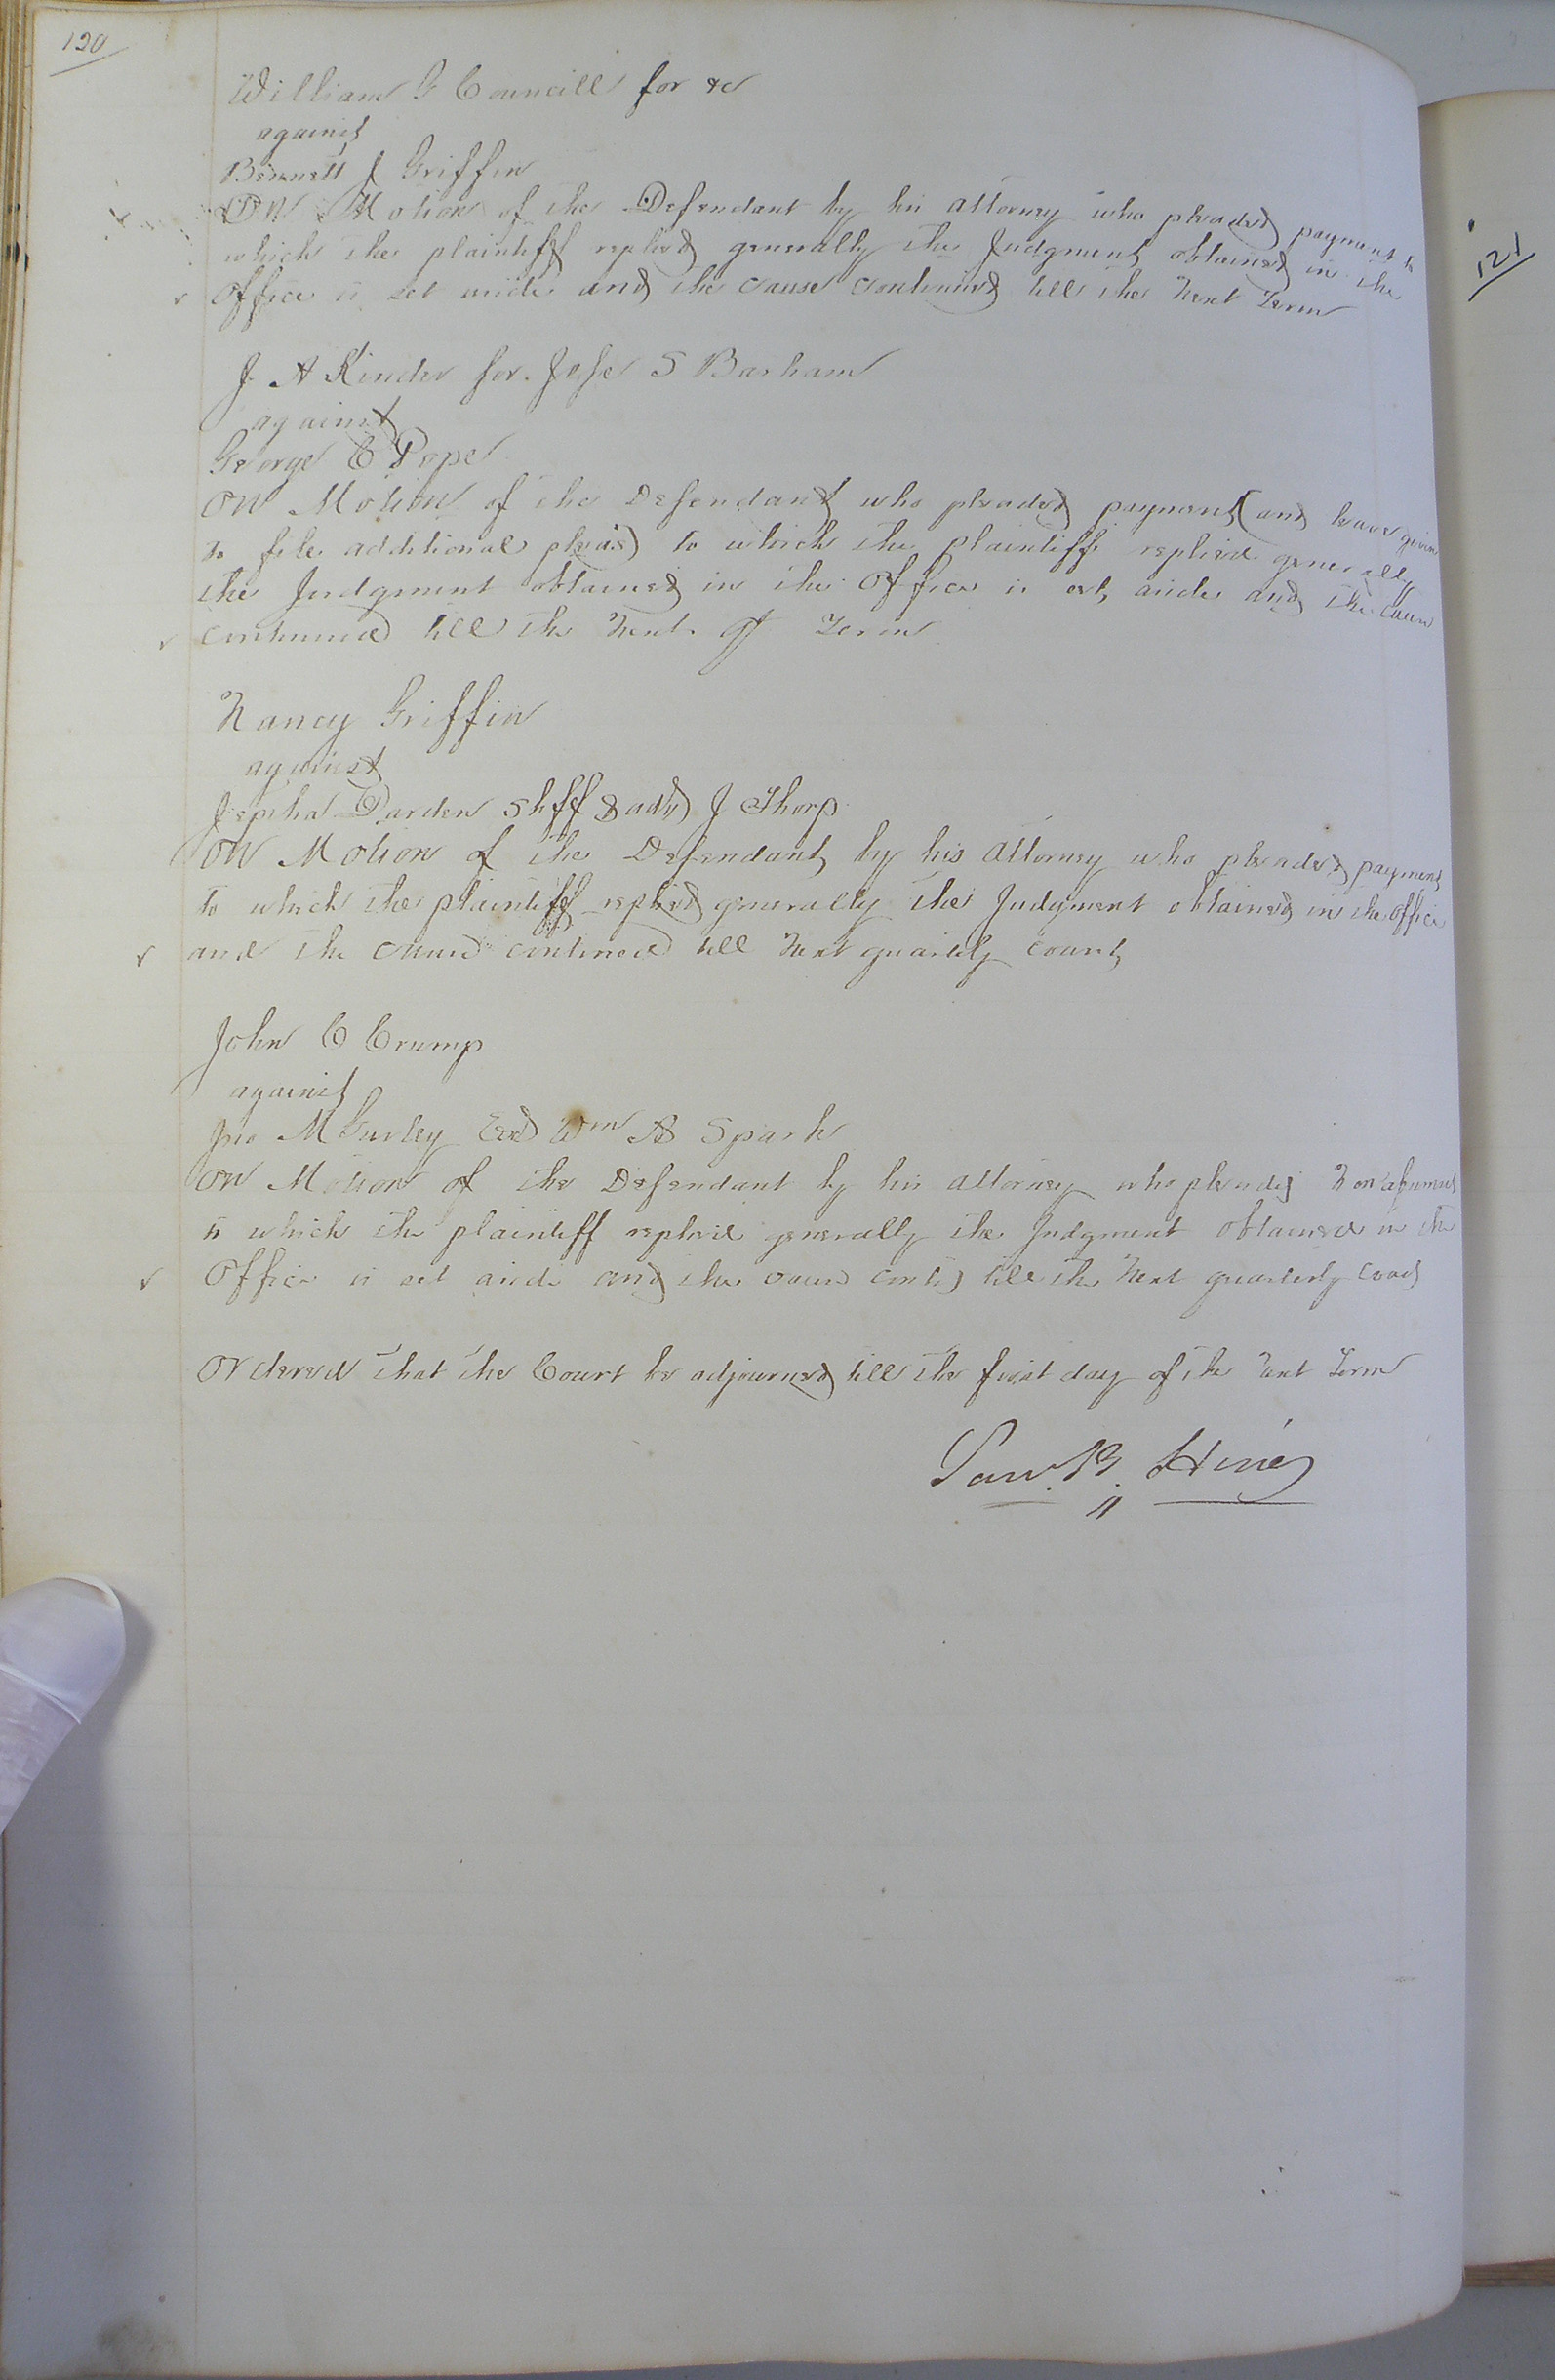 120
William G Councill for &c
against
Bennett J Griffin
On Motion of the Defendant by his attorney who pleaded payment to
which the plaintiff replied generally the Judgment obtained in the
Office is set aside and the cause continued till the Next Term
J A Kindr for Jesse S Barham
against
George E Pope
On Motion of the Defendant who pleaded payment (and leave given
to file additional pleas) to which the plaintiff replied generally
the Judgment obtained in the Office is set aside and the cause
continued till the Next qt Term
Nancy Griffin
against
Jepha Darden Shff & adm J Thorp
On Motion of the Defendant by his attorney who pleaded payment
to which the plaintiff replied generally the Judgment obtained in the office
and the cause continued till Next quartely court
John C Crump
against
Jno M Gurley Exd Wm A Spark
On Motion of the Defendant by his attorney who pleads Non asumsit
to which the plaintiff replied generally the Judgment obtained in the
Office is set aside and the cause contd till the Next quarterly court
Ordered that the Court be adjourned till the first day of the next Term
B. Hines
121